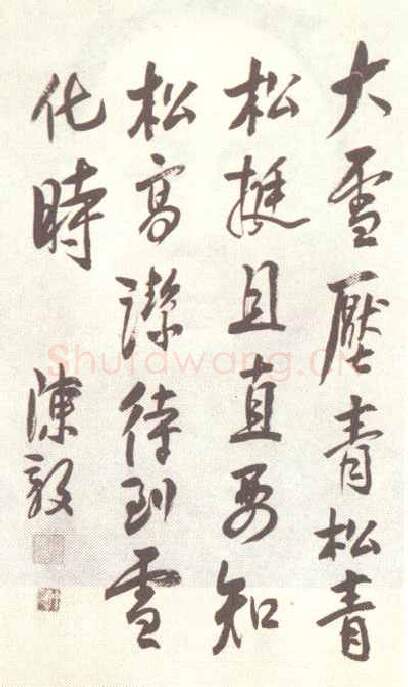 大雪壓青松青
松挺且直要知
松高潔待到雪
化時
陳毅
Shufawang.cn